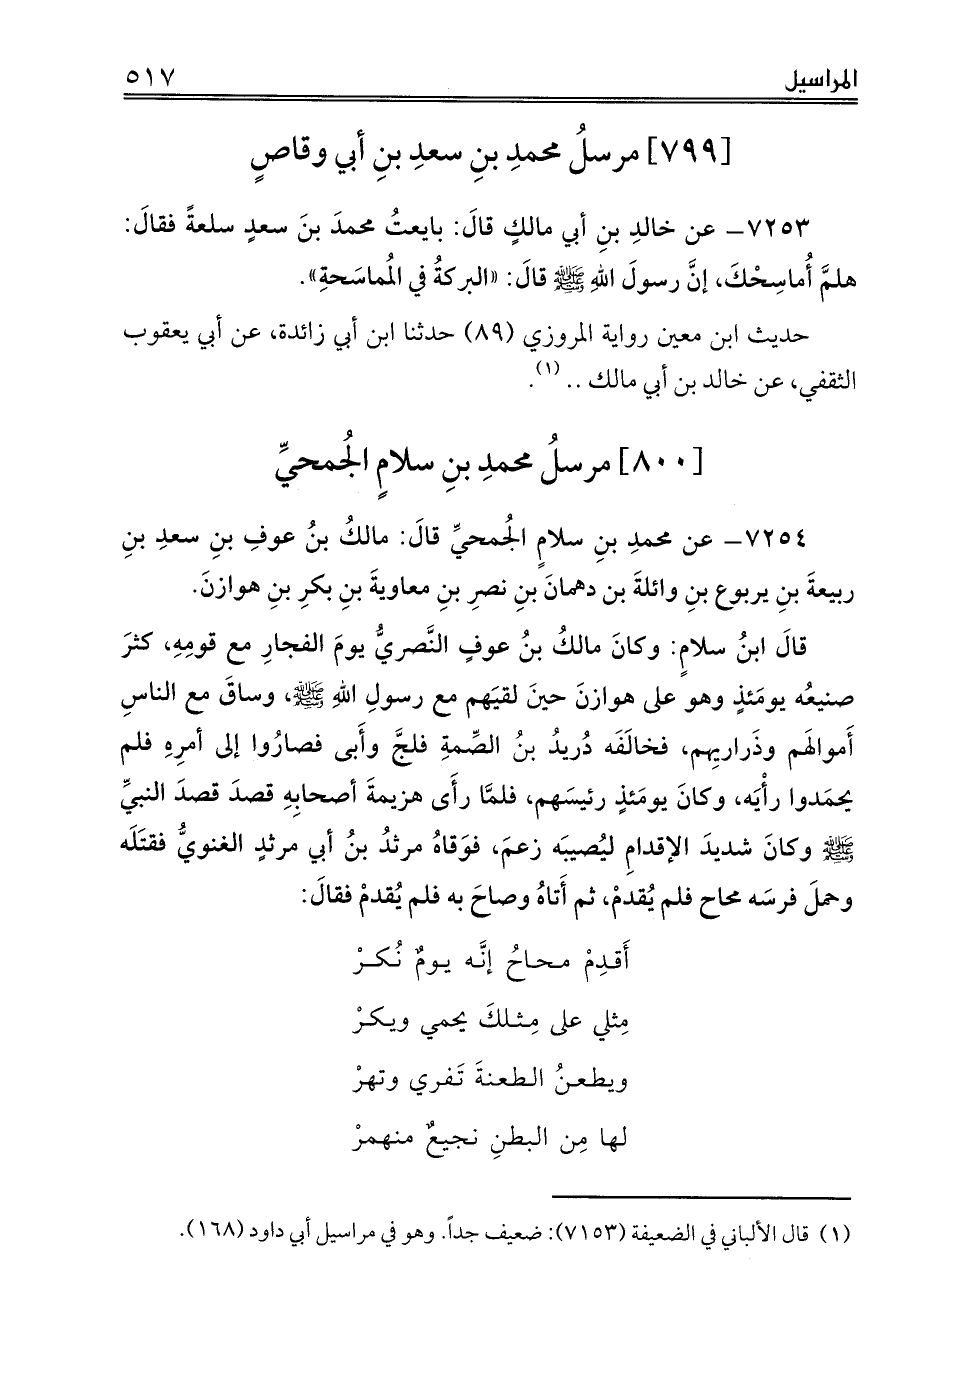 المراسيل ٥١٧
[٧٩٩] مرسلُ محمدِ بنِ سعدِ بنِ أبي وقاصٍ
٧٢٥٣- عن خالدِ بنِ أبي مالكٍ قالَ: بايعتُ محمدَ بنَ سعدٍ سلعةً فقالَ:
هلمَّ أُماسِحْكَ، إنَّ رسولَ اللهِ ﷺ قالَ: «البركةُ في المُماسَحةِ».
حديث ابن معين رواية المروزي (٨٩) حدثنا ابن أبي زائدة، عن أبي يعقوب
الثقفي، عن خالد بن أبي مالك .. (١).
[٨٠٠] مرسلُ محمدِ بنِ سلامٍ الجُمحيِّ
٧٢٥٤- عن محمدِ بنِ سلامٍ الجُمحيِّ قالَ: مالكُ بنُ عوفِ بنِ سعدِ بنِ
ربيعةَ بنِ يربوعِ بنِ وائلةَ بن دهمانَ بنِ نصرِ بنِ معاويةَ بنِ بكرِ بنِ هوازنَ.
قالَ ابنُ سلامٍ: وكانَ مالكُ بنُ عوفٍ النَّصريُّ يومَ الفجارِ مع قومِهِ، كثرَ
صنيعُه يومَئذٍ وهو على هوازنَ حينَ لقيَهم مع رسولِ اللهِ ﷺ، وساقَ مع الناسِ
أَموالَهم وذَراريهم، فخالَفَه دُريدُ بنُ الصِّمةِ فلجَّ وأَبى فصارُوا إلى أمرِهِ فلم
يحمَدوا رأْيَه، وكانَ يومَئذٍ رئيسَهم، فلمَّا رأَى هزيمةَ أصحابِهِ قصدَ قصدَ النبيِّ
ﷺ وكانَ شديدَ الإقدامِ ليُصيبَه زعمَ، فوَقاهُ مرثدُ بنُ أبي مرثدٍ الغنويُّ فقتلَه
وحملَ فرسَه محاح فلم يُقدمْ، ثم أَتاهُ وصاحَ به فلم يُقدمْ فقالَ:
أَقدِمْ محاحُ إنَّه يومٌ نُكرْ
مِثلي على مِثلكَ يحمي ويكرْ
ويطعنُ الطعنةَ تَفري وتهرْ
لها مِن البطنِ نجيعٌ منهمرْ
(١) قال الألباني في الضعيفة (٧١٥٣): ضعيف جداً. وهو في مراسيل أبي داود (١٦٨).